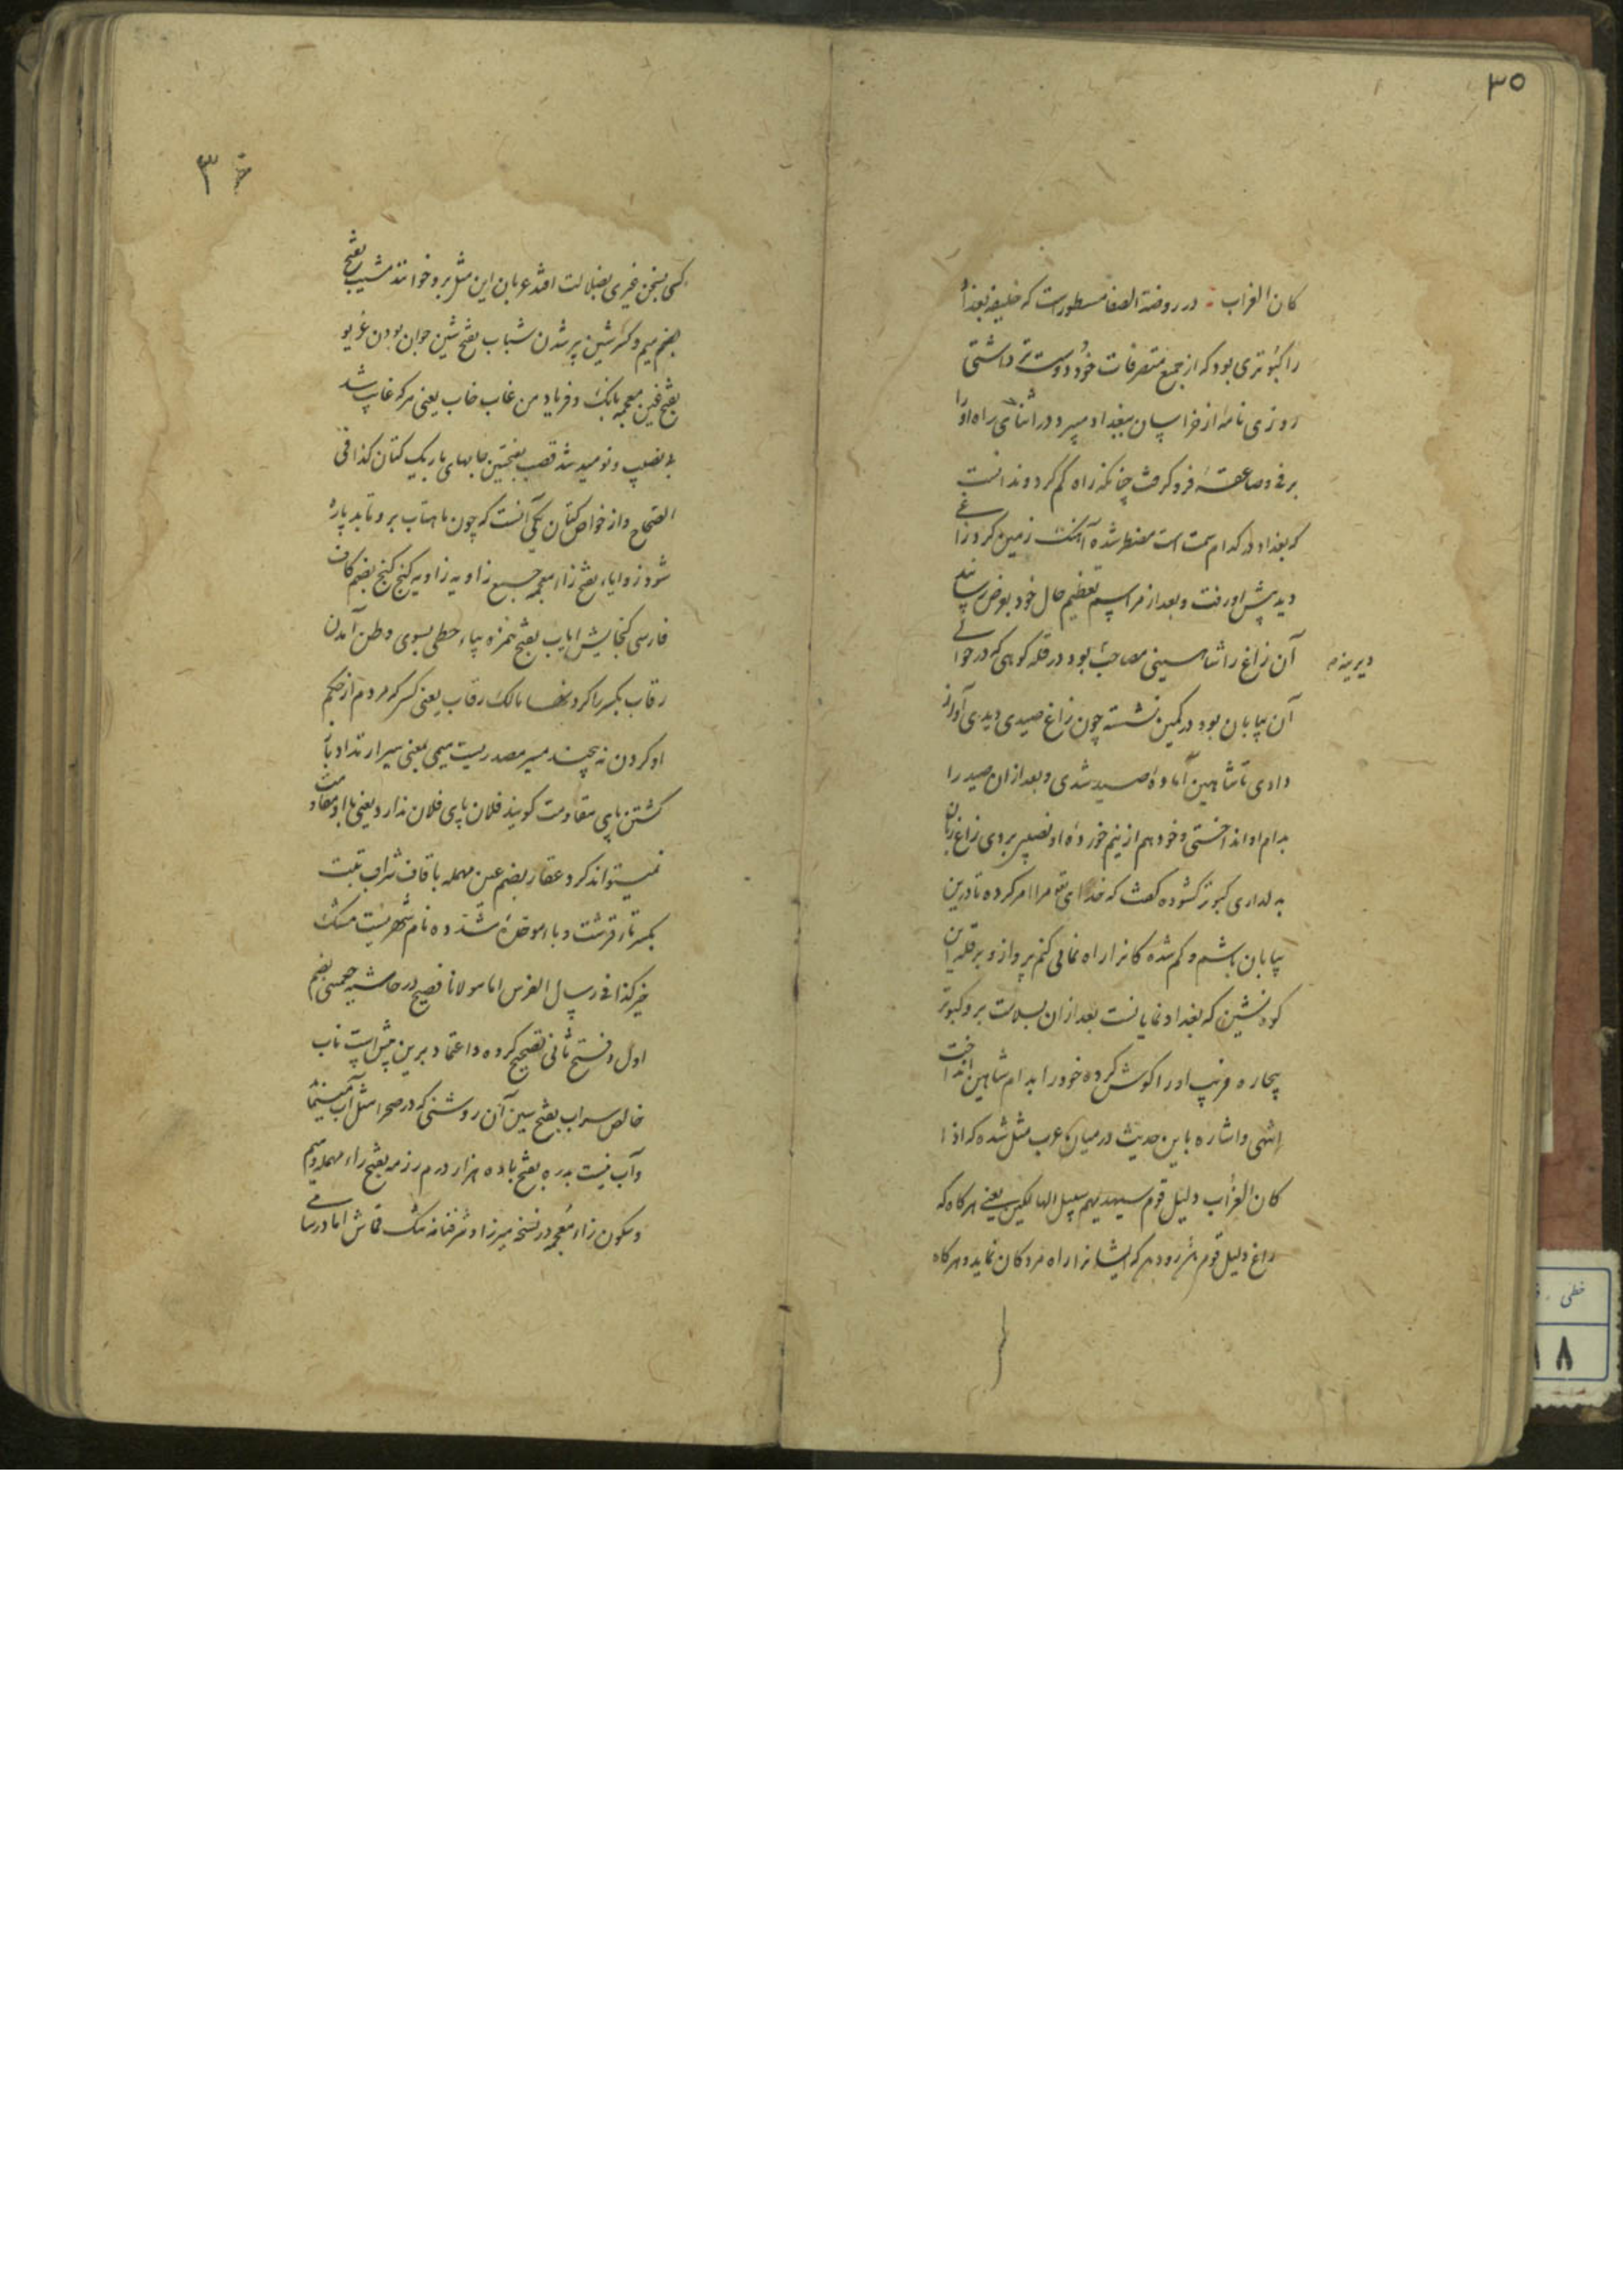 ۳۵
کان الغراب در روضة الصفا مسطور است که خلیفه بغداد
را کبوتری بود که از جمیع متصرفات خود دوست تر داشتی
روزی نامه از خراسان ببغداد میبرد در اثنای راه او را
برف و صاعقه فرو گرفت چنانکه راه گم کرد و ندانست
که بغداد در کدام سمت است مضطر شده آهنگ زمین کرد زاغی
دید پیش او رفت و بعد از مراسم تعظیم حال خود بعرض رسانید
آن زاغ را شاهینی مصاحب بود در قله کوهی که در حوالی
دیرینه
آن بیابان بود در کمین نشسته چون زاغ صیدی دیدی آواز
دادی تا شاهین آماده صید شدی و بعد از آن صید را
بدام او انداختی و خود هم از نیم خورده او نصیب بردی زاغ زبان
به لداری کبوتر گشوده گفت که خدای مرا امر کرده تا درین
بیابان باشم و گم شده کانرا راه نمائی کنم پرواز و بر قله این
کوه نشین که بغداد نمایانست بعد از آن بسلامت برو کبوتر
بیچاره فریب او را گوش کرده خود را بدام شاهین انداخت
انتهی و اشاره باین حدیث در میان عرب مثل شده که اذا
کان الغراب دلیل قوم سیهدیهم سبیل الهالکین یعنی هرگاه که
زاغ دلیل قوم شود ایشانرا راه مردکان نماید و هرگاه
۳
کسی بسخن غیری بضلالت افتد عربان این مثل برو خوانند مشیب بفتح
میم و کسر شین پیر شدن شباب بفتح شین جوان بودن غریو
بفتح غین معجمه بانگ و فریاد من غاب خاب یعنی هر که غایب شد
بی نصیب و نومید شد قصب بفتحتین جامهای باریک کتان کذا فی
الصحاح و از خواص کتان یکی آنست که چون ماهتاب برو تابد پاره
شود زوایا بفتح زاء معجمه جمیع زاویه زاویه کنج کنج بضم کاف
فارسی گنجایش ایاب بفتح همزه بیاء حطی بسوی وطن آمدن
رقاب بکسر را گردنها مالک رقاب یعنی کسی که مردم از حکم
او گردن نه پیچند مسیر مصدریست میمی بمعنی سیر ارتداد باز
گشتن پای مقاومت گویند فلان پای فلان ندارد یعنی با او مقاومت
نمیتواند کرد عقار بضم عین مهمله با قاف شراب تبت
بکسر تاء قرشت و باء موحده مشدده نام شهریست مشک
خیز کذا فی رسایل الفرس اما مولانا فصیح در حاشیه بضم
اول و فتح ثانی تصحیح کرده و اعتماد برین بیش است ناب
خالص سراب بفتح سین آن روشنی که در صحرا مثل آب مینماید
و آب نیست بدره بفتح با ده هزار درم رزمه بفتح راء مهمله و میم
و سکون زاء معجمه در نسخه میرزا و شرفنامه تنگ قماش اما در سامی
خطی
۸